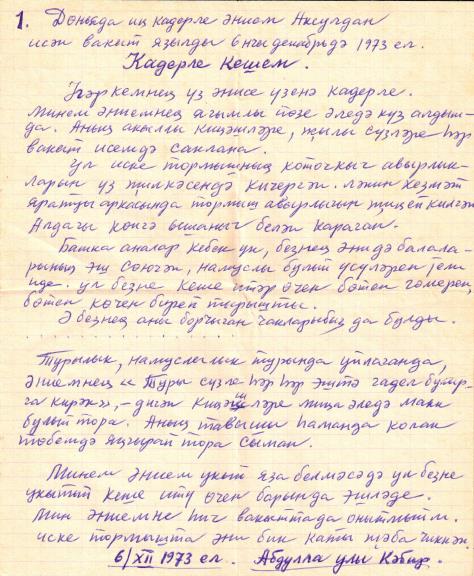 1. Доньяда иң кадерле әнием
исән вакыт язылды 6 нчы декабрьдә 1973 ел.
Кадерле Кешем.
Һәркемнең үз әнисе үзенә кадерле.
Минем әниемнең ачыклы йөзе әледә күз алдым-
да. Аның акыллы киңәшләре, җылы сүзләре һәр
вакыт исемдә саклана.
Ул иске тормышның коточкыч авырлык-
ларын үз җилкәсендә кичергән. Ләкин хезмәт
яратуы аркасында тормыш авырлыгын җиңеп килгән.
Алдагы көнгә ышаныч белән караган.
Башка аналар кебек үк, безнең әнидә балала-
рының эш сөюгән, намуслы булып үсүләрен тели
иде. Ул безне кеше итәр өчен бөтен гомерен,
бөтен көчен биреп тырышты.
Ә безнең аны борчыган чакларыбыз да булды.
Турылык, намуслылык турында уйлаганда,
әниемнең "Туры сүзле һәр һәр эштә гадел булыр-
га кирәк", - дигән киңәшләре миңа әледә маяк
булып тора. Аның тавышы һаманда колак
төбемдә яңгырап тора сыман.
Минем әнием укый яза белмәсәдә ул безне
укытып кеше итү өчен барында эшләде.
Мин әниемне һич вакыттада онытмыйм.
иске тормышта әни бик каты җәфа чиккән.
6/XII 1973 ел. Абдулла улы Кәбир.